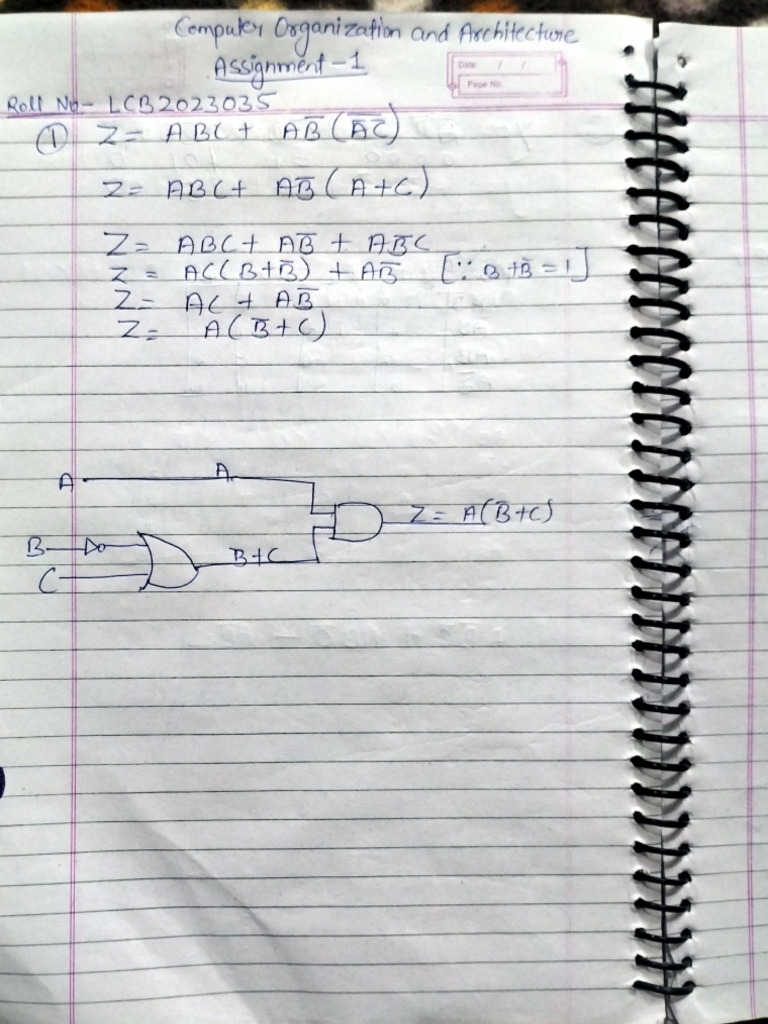 Computer Organization and Architecture
Assignment - 1
Date / /
Page No.
Roll No- LCB2023035
① Z = ABC + AB̅ (A̅C̅)
Z = ABC + AB̅ (A+C)
Z = ABC + AB̅ + AB̅C
Z = AC(B+B̅) + AB̅ [∵ B+B̅=1]
Z = AC + AB̅
Z = A(B̅+C)
A A
Z = A(B̅+C)
B B̅+C
C